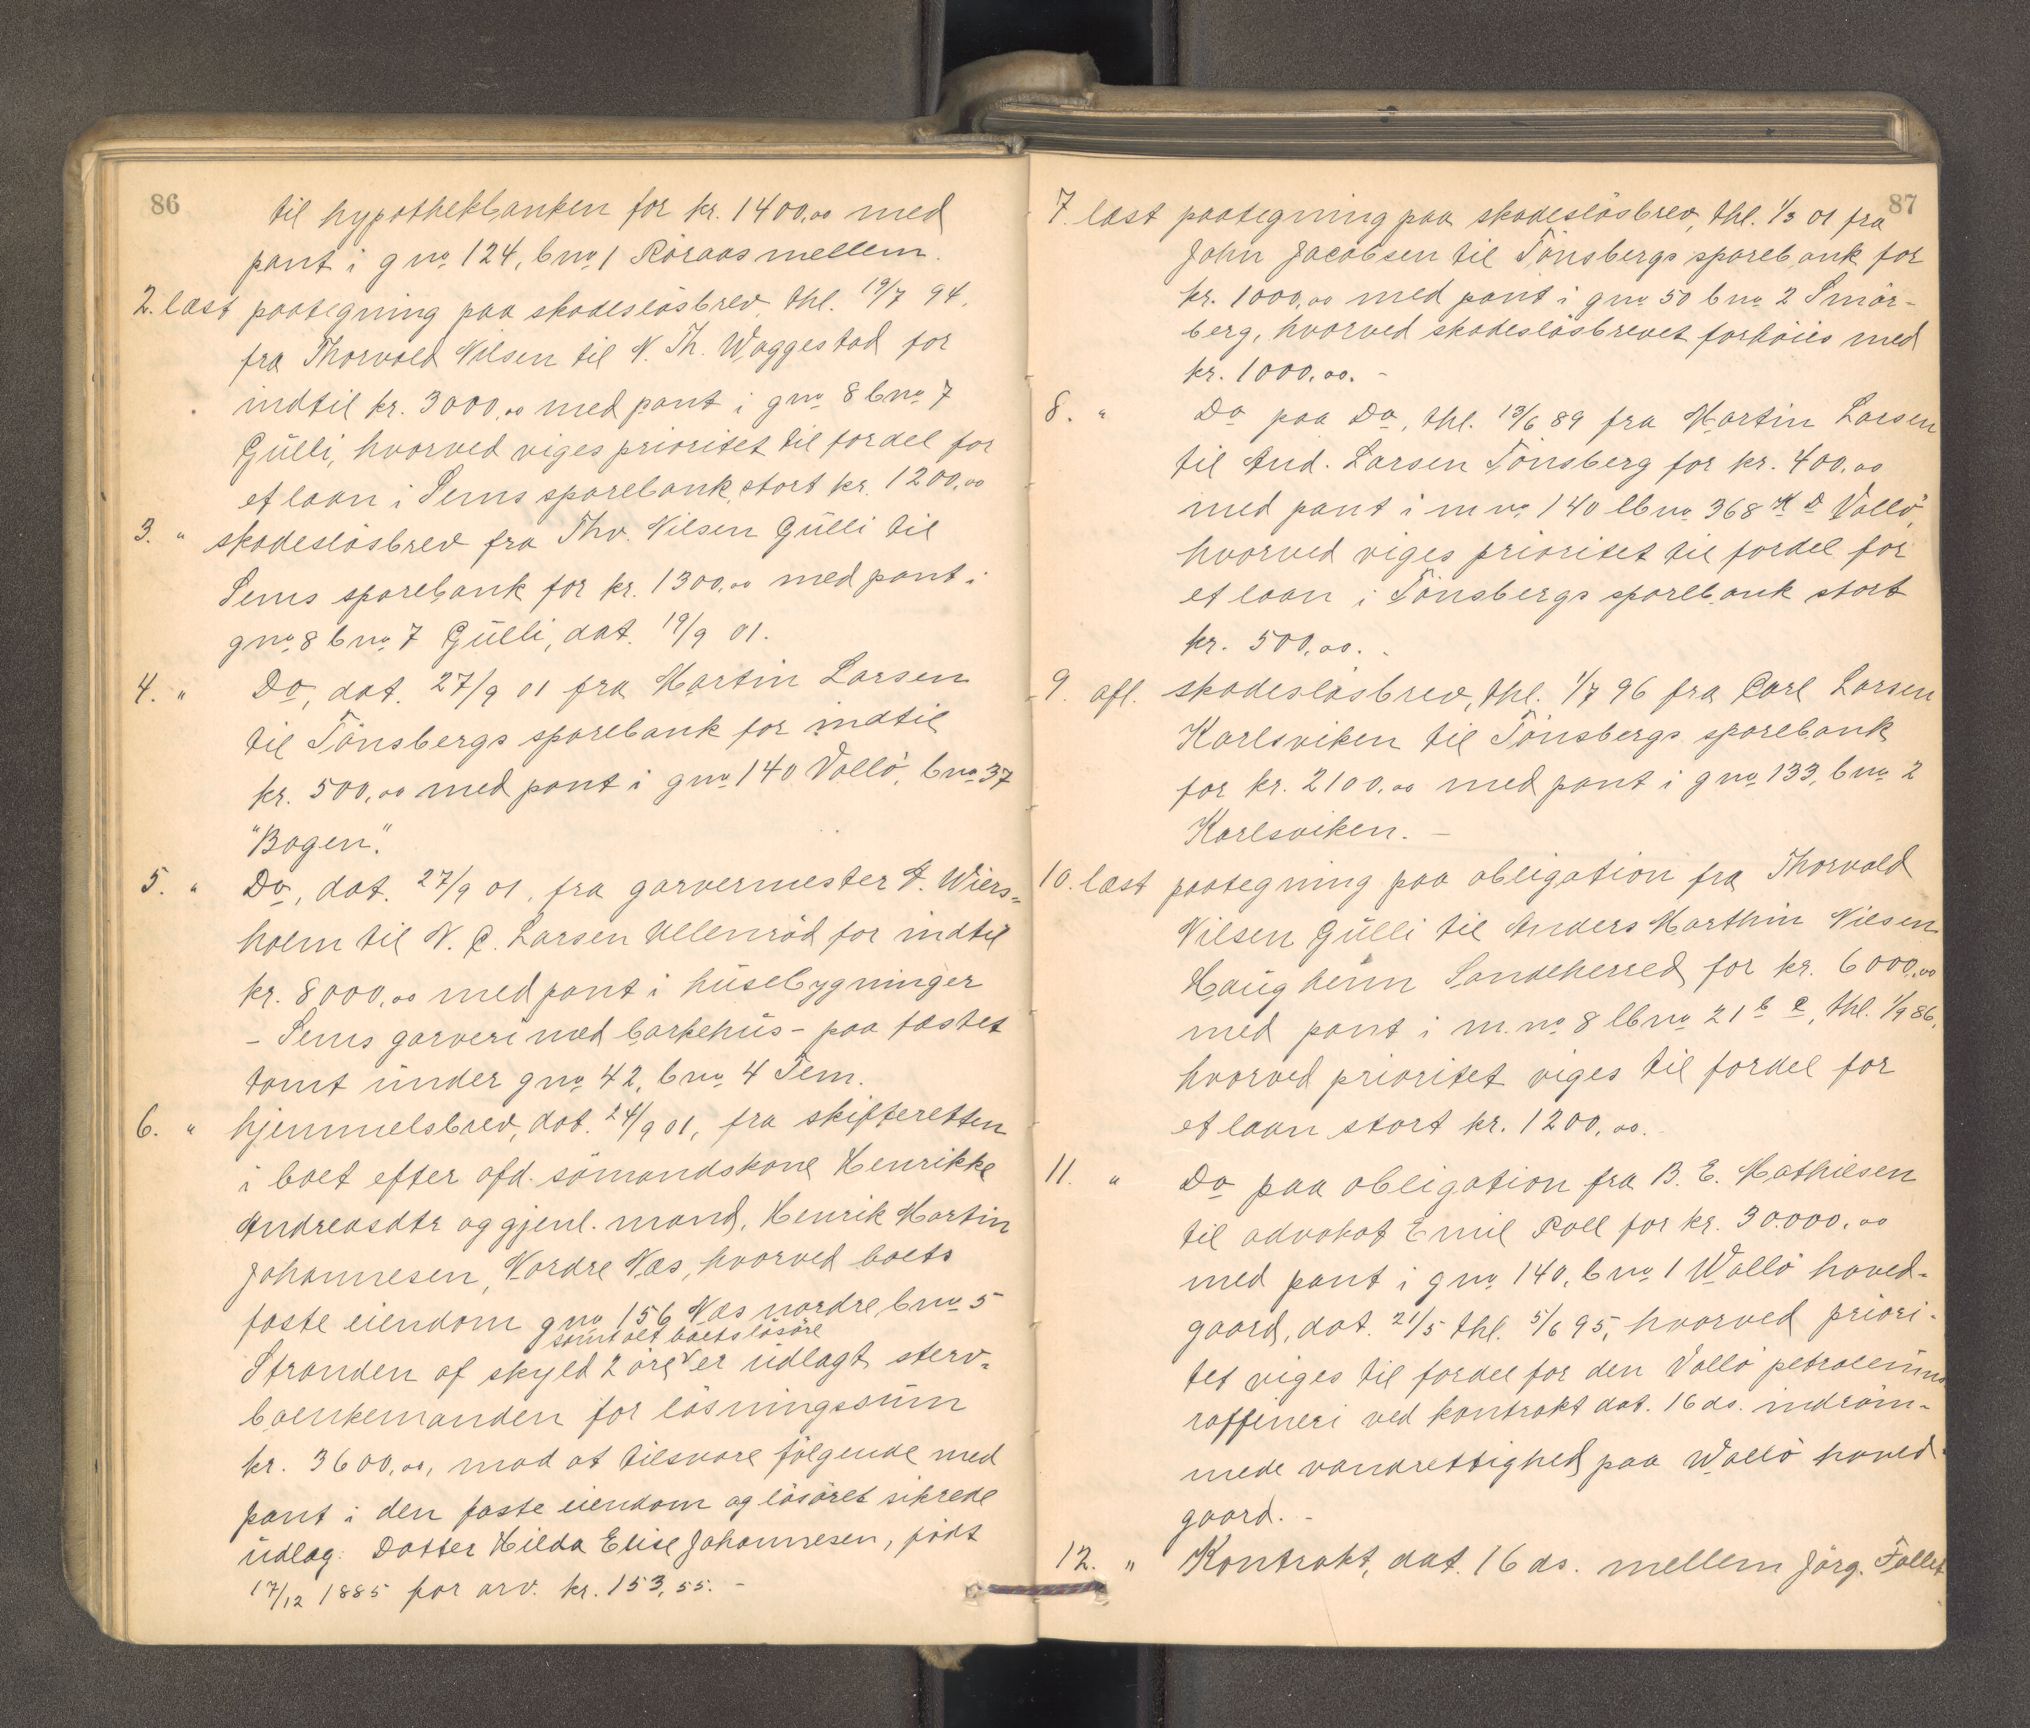 86
til hypothekbanken for kr. 1400,00 med
pant i gno. 124, bno. 1 Råraas mellem.
2. læst paategning paa skadeslösbrev, thl. 19/7 94,
fra Thorvald Nilsen til N. Th. Waggestad for
indtil kr. 3000,00 med pant i gno. 8 bno. 7
Gulli, hvorved viges prioritet til fordel for
et laan i Sems sparebank stort kr. 1200,00
3. " skadeslösbrev fra Thv. Nilsen Gulli til
Sems sparebank for kr. 1300,00 med pant i
gno. 8 bno. 7 Gulli, dat. 19/9 01.
4. " Do, dat. 27/9 01 fra Martin Larsen
til Tönsbergs sparebank for indtil
kr. 500,00 med pant i gno. 140 Vallö, bno. 37
"Bogen".
5. " Do, dat. 27/9 01, fra garvermester A. Wiers-
holm til N. C. Larsen Ullenröd for indtil
kr. 8000,00 med pant i husebygninger
- Sems garveri med barkehus - paa fæstet
tomt under gno. 42, bno. 4 Sem.
6. " hjemmelsbrev, dat. 24/9 01, fra skifteretten
i boet efter afd. sömandskone Henrikke
Andreasdtr og gjenl. mand, Henrik Martin
Johannesen, Nordre Næs, hvorved boets
faste eiendom gno. 156 Næs nordre, bno. 5
samt alt boets lösöre
Stranden af skyld 2 öre er udlagt sterv-
boenkemanden for lösningssum
kr. 3600,00, mod at tilsvare fölgende med
pant i den faste eiendom og lösöret sikrede
udlag: Datter Hilda Elise Johannesen, födt
17/12 1885 for arv. kr. 153,55. -
87
7. læst paategning paa skadeslösbrev, thl. 1/3 01 fra
John Jacobsen til Tönsbergs sparebank for
kr. 1000,00 med pant i gno. 50 bno. 2 Smör-
berg, hvorved skadeslösbrevet forhöies med
kr. 1000,00. -
8. " Do paa Do, thl. 13/6 89 fra Martin Larsen
til And. Larsen Tönsberg for kr. 400,00
med pant i m no. 140 lbno. 368 K D Vallö,
hvorved viges prioritet til fordel for
et laan i Tönsbergs sparebank stort
kr. 500,00. -
9. afl. skadeslösbrev, thl. 1/7 96 fra Carl Larsen
Karlsviken til Tönsbergs sparebank
for kr. 2100,00 med pant i gno. 133, bno. 2
Karlsviken. -
10. læst paategning paa obligation fra Thorvald
Nilsen Gulli til Anders Marthin Nilsen
Haugheim Sandeherred for kr. 6000,00
med pant i m. no. 8 lbno. 21 b c, thl. 1/9 86,
hvorved prioritet viges til fordel for
et laan stort kr. 1200,00.
11. " Do paa obligation fra B. E. Mathiesen
til advokat Emil Roll for kr. 30.000,00
med pant i gno. 140, bno. 1 Wallö hoved-
gaard, dat. 21/5 thl. 5/6 95, hvorved priori-
tet viges til fordel for den Vallö petroleums
raffineri ved kontrakt dat. 16 ds. indröm-
mede vandrettighed paa Wallö hoved-
gaard. -
12. " Kontrakt, dat. 16 ds. mellem Jörg.